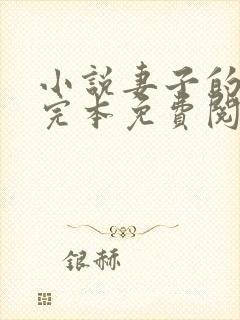 小説妻子的
完本免費閱
银赫